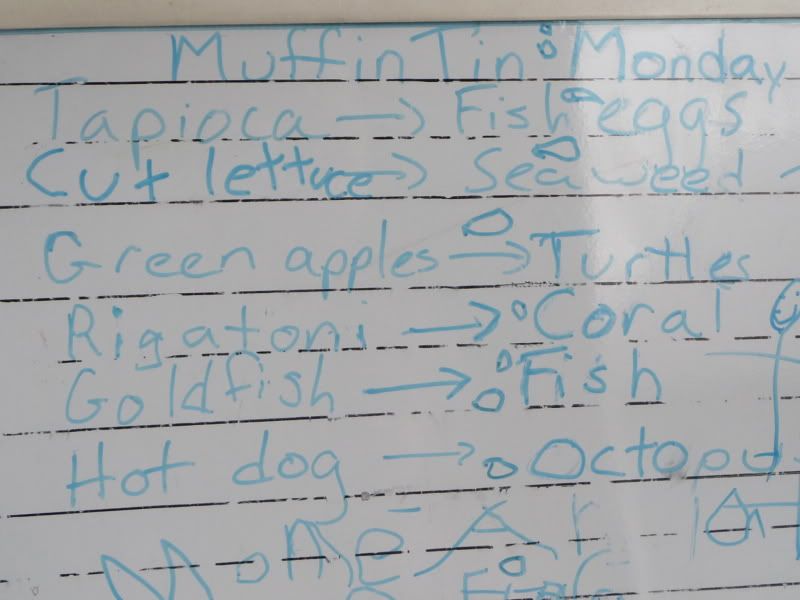 Muffin Tin Monday
Tapioca → Fish eggs
Cut lettuce → Seaweed
Green apples → Turtles
Rigatoni → Coral
Goldfish → Fish
Hot dog → Octopus